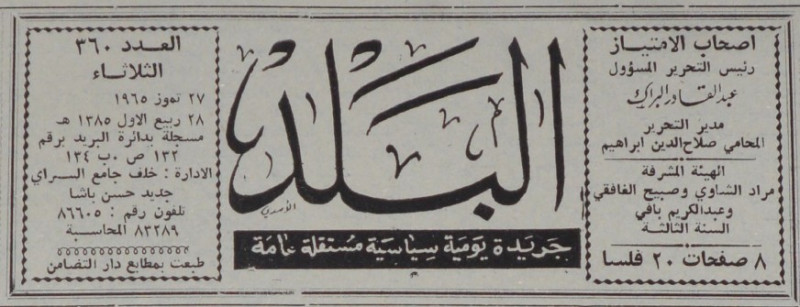 اصحاب الامتياز
رئيس التحرير المسؤول
عبدالقادر البراك
مدير التحرير
المحامي صلاح الدين ابراهيم
الهيئة المشرفة
مراد الشاوي وصبيح الغافقي
وعبدالكريم بافي
السنة الثالثة
٨ صفحات ٢٠ فلسا
البلد
جريدة يومية سياسية مستقلة عامة
العدد ٣٦٠
الثلاثاء
٢٧ تموز ١٩٦٥
٢٨ ربيع الاول ١٣٨٥ هـ
مسجلة بدائرة البريد برقم
١٣٢ ص ٠ب ١٣٤
الادارة : خلف جامع السراي
جديد حسن باشا
تلفون رقم : ٨٦٦٠٥
٨٣٢٨٩ المحاسبة
طبعت بمطابع دار التضامن